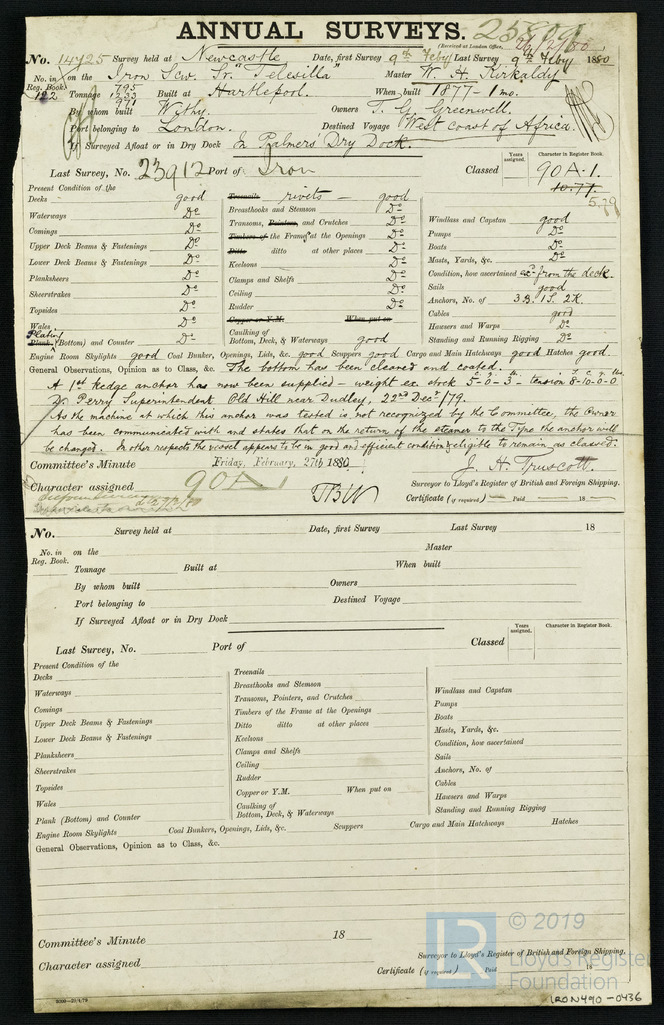 ANNUAL SURVEYS.
(Received at London Office,
No. 14725 Survey held at Newcastle Date, first Survey 9th Feby Last Survey 9th Feby 1880
No. in Reg. Book. on the Iron Scw. Sr. "Televilla" Master W. H. Kirkaldy
122 Tonnage 795 1233 971 Built at Hartlepool. When built 1877 - 1 mo.
By whom built Withy. Owners T. G. Greenwell.
Port belonging to London. Destined Voyage West coast of Africa.
If Surveyed Afloat or in Dry Dock In Palmers' Dry Dock.
Last Survey, No. 23912 Port of Iron Classed Years assigned. Character in Register Book. 90 A.1.
10.77
5.79
Present Condition of the
Decks good
Waterways Do
Comings Do
Upper Deck Beams & Fastenings Do
Lower Deck Beams & Fastenings Do
Planksheers Do
Sheerstrakes Do
Topsides Do
Wales Do
Plating Plank (Bottom) and Counter Do
Treenails rivets good
Breasthooks and Stemson Do
Transoms, Pointers, and Crutches Do
Timbers of the Frame at the Openings Do
Ditto ditto at other places Do
Keelsons Do
Clamps and Shelfs Do
Ceiling Do
Rudder Do
Copper or Y.M. When put on
Caulking of Bottom, Deck, & Waterways good
Windlass and Capstan good
Pumps Do
Boats Do
Masts, Yards, &c. Do
Condition, how ascertained as from the deck.
Sails good
Anchors, No. of 3B. 1S. 2K
Cables good
Hawsers and Warps Do
Standing and Running Rigging Do
Engine Room Skylights good Coal Bunker, Openings, Lids, &c. good Scuppers good Cargo and Main Hatchways good Hatches good.
General Observations, Opinion as to Class, &c. The bottom has been cleaned and coated.
A 1st kedge anchor has now been supplied - weight ex stock 5-0-3 - tension 8-10-0-0
Perry Superintendent Old Hill near Dudley, 22nd Decr/79.
As the machine at which this anchor was tested is not recognized by the Committee, the Owner
has been communicated with and states that on the return of the steamer to the Tyne the anchor will
be changed. In other respects the vessel appears to be in good and efficient condition & eligible to remain as classed.
Committee's Minute Friday, February, 27th 1880 J. H. Truscott.
Character assigned 90A1 Surveyor to Lloyd's Register of British and Foreign Shipping.
Certificate (if required) Paid 18
No. Survey held at Date, first Survey Last Survey 18
No. in Reg. Book. on the Master
Tonnage Built at When built
By whom built Owners
Port belonging to Destined Voyage
If Surveyed Afloat or in Dry Dock
Last Survey, No. Port of Classed Years assigned. Character in Register Book.
Present Condition of the
Decks
Waterways
Comings
Upper Deck Beams & Fastenings
Lower Deck Beams & Fastenings
Planksheers
Sheerstrakes
Topsides
Wales
Plank (Bottom) and Counter
Treenails
Breasthooks and Stemson
Transoms, Pointers, and Crutches
Timbers of the Frame at the Openings
Ditto ditto at other places
Keelsons
Clamps and Shelfs
Ceiling
Rudder
Copper or Y.M. When put on
Caulking of Bottom, Deck, & Waterways
Windlass and Capstan
Pumps
Boats
Masts, Yards, &c.
Condition, how ascertained
Sails
Anchors, No. of
Cables
Hawsers and Warps
Standing and Running Rigging
Engine Room Skylights Coal Bunkers, Openings, Lids, &c. Scuppers Cargo and Main Hatchways Hatches
General Observations, Opinion as to Class, &c.
Committee's Minute 18
Character assigned
Surveyor to Lloyd's Register of British and Foreign Shipping.
Certificate (if required) Paid 18
LR © 2019
Lloyd's Register
Foundation
IRON490-0436